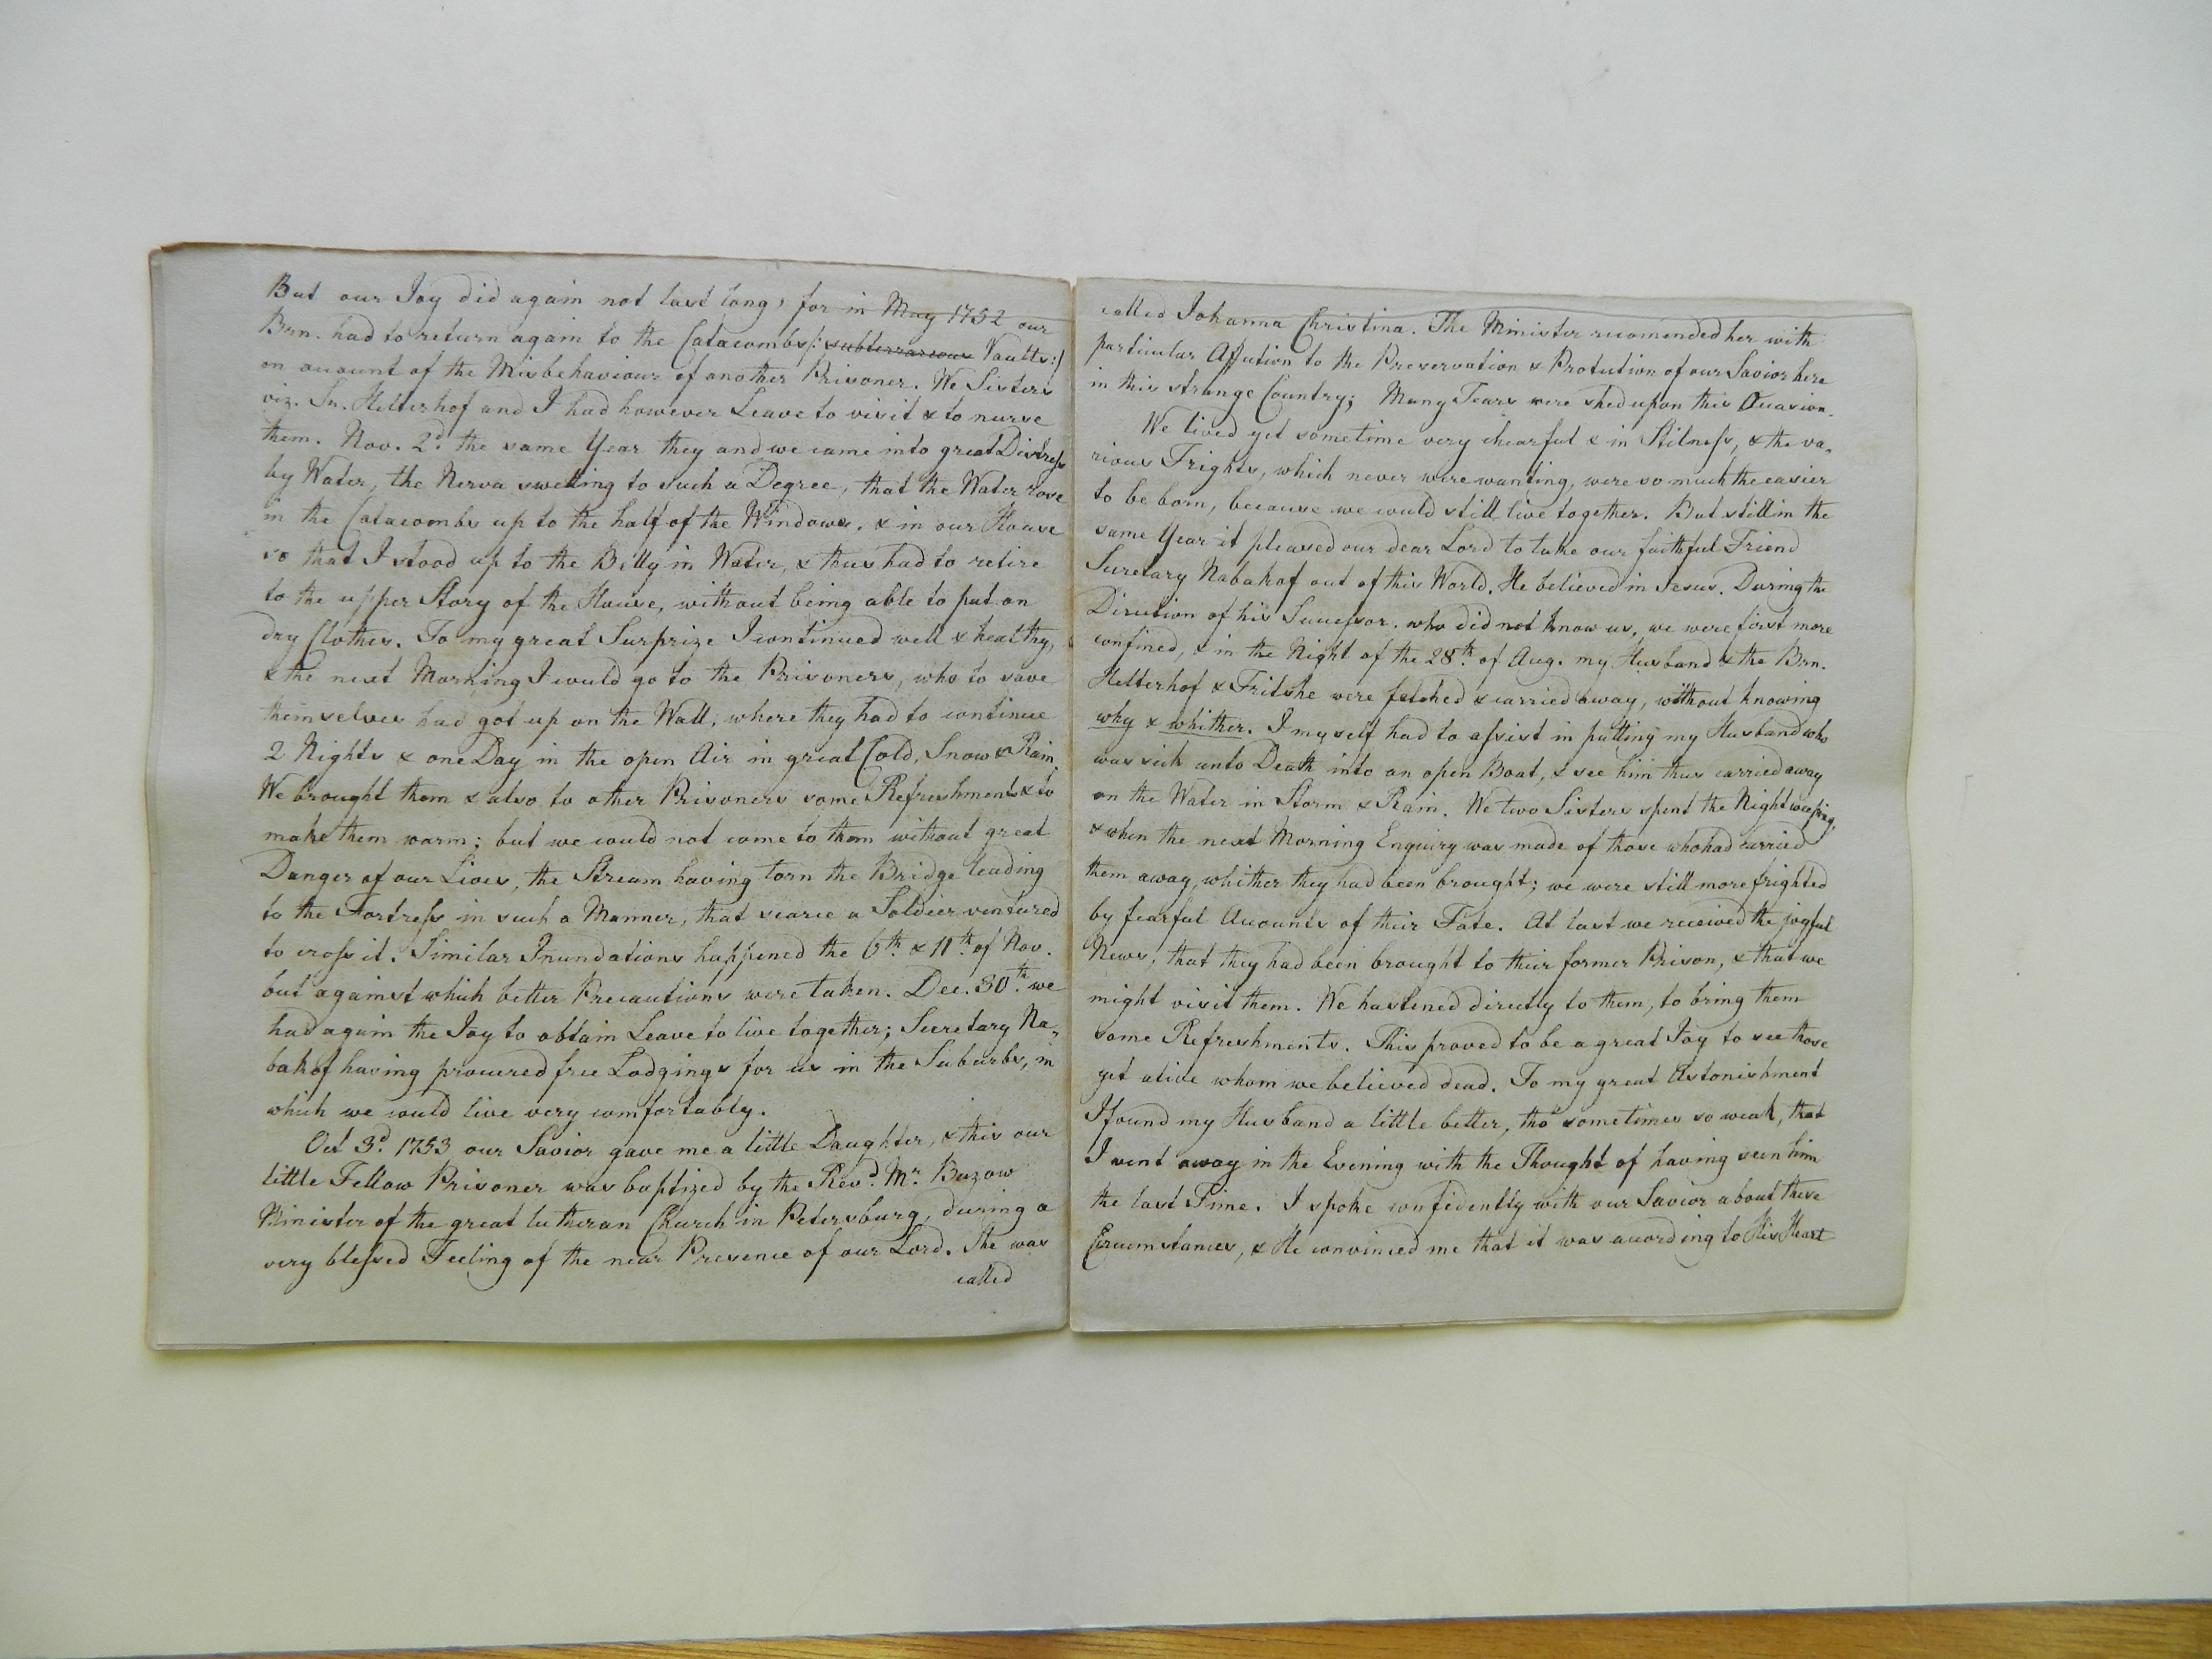 But our Joy did again not last long, for in May 1752 our
Brn. had to return again to the Catacombs /: subterraneous Vaults :/
on account of the Misbehaviour of another Prisoner. We Sisters
viz. Sr. Helterhof and I had however Leave to visit & to nurse
them. Nov. 2d. the same Year they and we came into great Distress
by Water, the Nerva swelling to such a Degree, that the Water rose
in the Catacombs up to the half of the Windows, & in our House
so that I stood up to the Belly in Water, & thus had to retire
to the upper Story of the House, without being able to put on
dry Clothes. To my great Surprize I continued well & healthy,
& the next Morning I could go to the Prisoners, who to save
themselves had got up on the Wall, where they had to continue
2 Nights & one Day in the open Air in great Cold, Snow & Rain.
We brought them & also to other Prisoners some Refreshments & to
make them warm; but we could not come to them without great
Danger of our Lives, the Stream having torn the Bridge leading
to the Fortress in such a Manner, that scarce a Soldier ventured
to cross it. Similar Inundations happened the 6th. & 11th. of Nov.
but against which better Precautions were taken. Dec. 30th. we
had again the Joy to obtain Leave to live together; Secretary Na-
bakof having procured free Lodgings for us in the Suburbs, in
which we could live very comfortably.
Oct 3d. 1753 our Savior gave me a little Daughter, & this our
little Fellow Prisoner was baptized by the Revd. Mr. Buzow
Minister of the great lutheran Church in Petersburg, during a
very blessed Feeling of the near Presence of our Lord. She was
called
called Johanna Christina. The Minister recomended her with
particular Affection to the Preservation & Protection of our Savior here
in this strange Country; Many Tears were shed upon this Occasion.
We lived yet sometime very chearful & in Stilness, & the va-
rious Frights, which never were wanting, were so much the easier
to be born, because we could still live together. But still in the
same Year it pleased our dear Lord to take our faithful Friend
Secretary Nabakof out of this World. He believed in Jesus. During the
Direction of his Successor, who did not know us, we were first more
confined, & in the Night of the 28th. of Aug. my Husband & the Brn.
Helterhof & Fritshe were fetched & carried away, without knowing
why & whither. I myself had to assist in putting my Husband who
was sick unto Death into an open Boat, & see him thus carried away
on the Water in Storm & Rain. We two Sisters spent the Night weeping,
& when the next Morning Enquiry was made of those who had carried
them away, whither they had been brought; we were still more frighted
by fearful Accounts of their Fate. At last we received the joyful
News, that they had been brought to their former Prison, & that we
might visit them. We hastened directly to them, to bring them
some Refreshments. This proved to be a great Joy to see those
yet alive whom we believed dead. To my great Astonishment
I found my Husband a little better, tho' sometimes so weak, that
I went away in the Evening with the Thought of having seen him
the last Time. I spoke confidently with our Savior about these
Circumstances, & He convinced me that it was according to His Heart